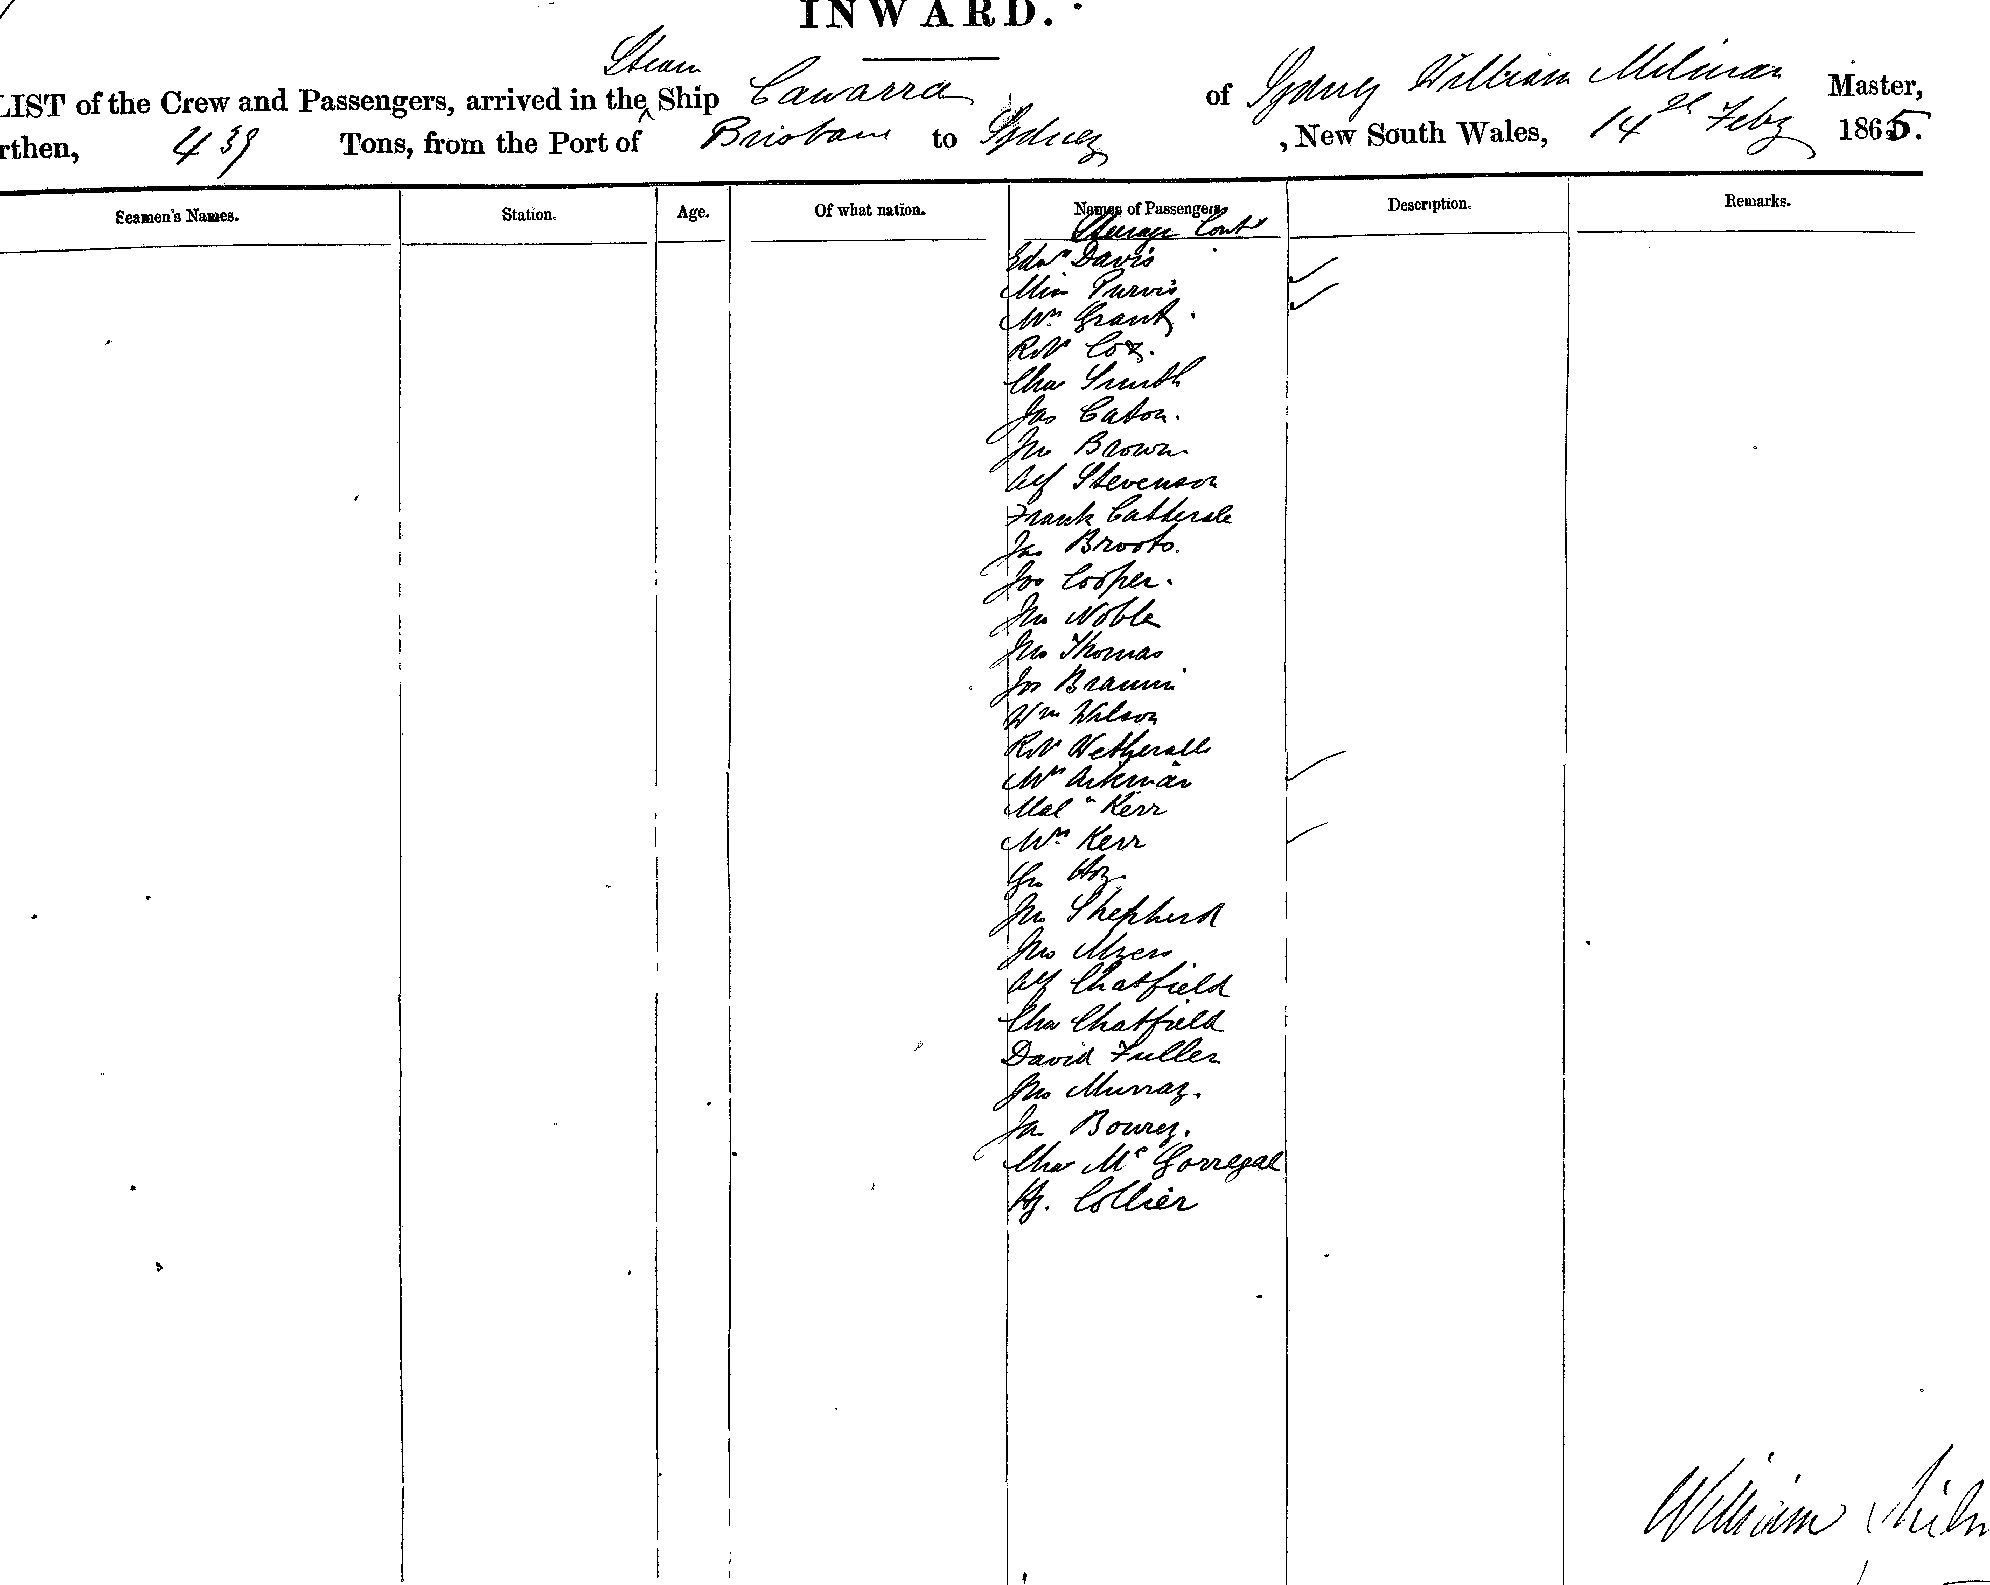 INWARD.
Steam
LIST of the Crew and Passengers, arrived in the Ship Cawarra of Sydney William Milman Master,
rthen, 439 Tons, from the Port of Brisbane to Sydney, New South Wales, 14th Feby 1865.
Seamen's Names. Station. Age. Of what nation. Names of Passengers. Description. Remarks.
Steerage Contd
Edwd Davis
Miss Purvis
Mrs Grant.
Robt Cox.
Chas Smith
Jas Caton.
Jno Brown
Alf Stevenson
Frank Catterale
Jas Brooks.
Jos Cooper.
Jno Noble
Jno Thomas
Jos
Wm Wilson
Robt Wetherall
Mrs
Mal Kerr
Mrs Kerr
Jno Shepherd
Jno Myers
Alf Chatfield
Chas Chatfield
David Fuller
Jno Murray.
Jas
Chas Mc Gorregal
Hy. Collier
William Miln